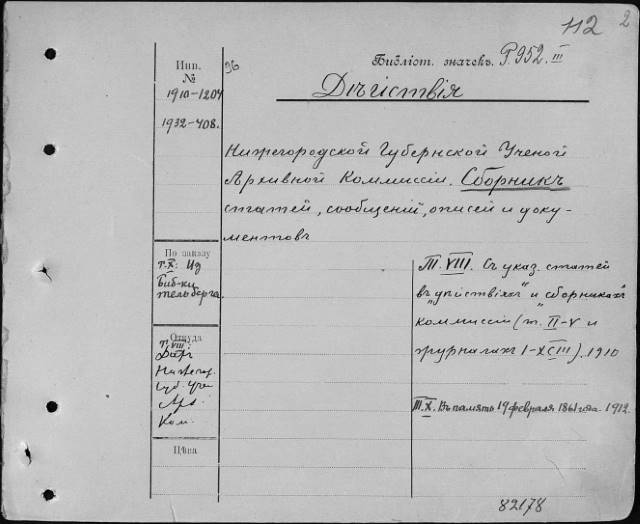 112 2
Инв.
№
96
Бібліот. значекъ. P. 952. III
1910-1204
Дѣйствія
1932-408.
Нижегородской Губернской Ученой
Архивной Коммиссіи. Сборникъ
статей, сообщений, описей и доку-
ментовъ
По заказу
т. X: Из
Биб-ки
Т. VIII. Съ указ. статей
въ „дѣйствіяхъ" и „сборникахъ"
коммиссіи (т. II-V и
журналахъ I-XCIII). 1910
Откуда
т. VIII:
Даръ
Нижегор.
Губ. Уче
Арх.
Ком.
Т. X. Въ память 19 февраля 1861 года 1912.
Цѣна
82178